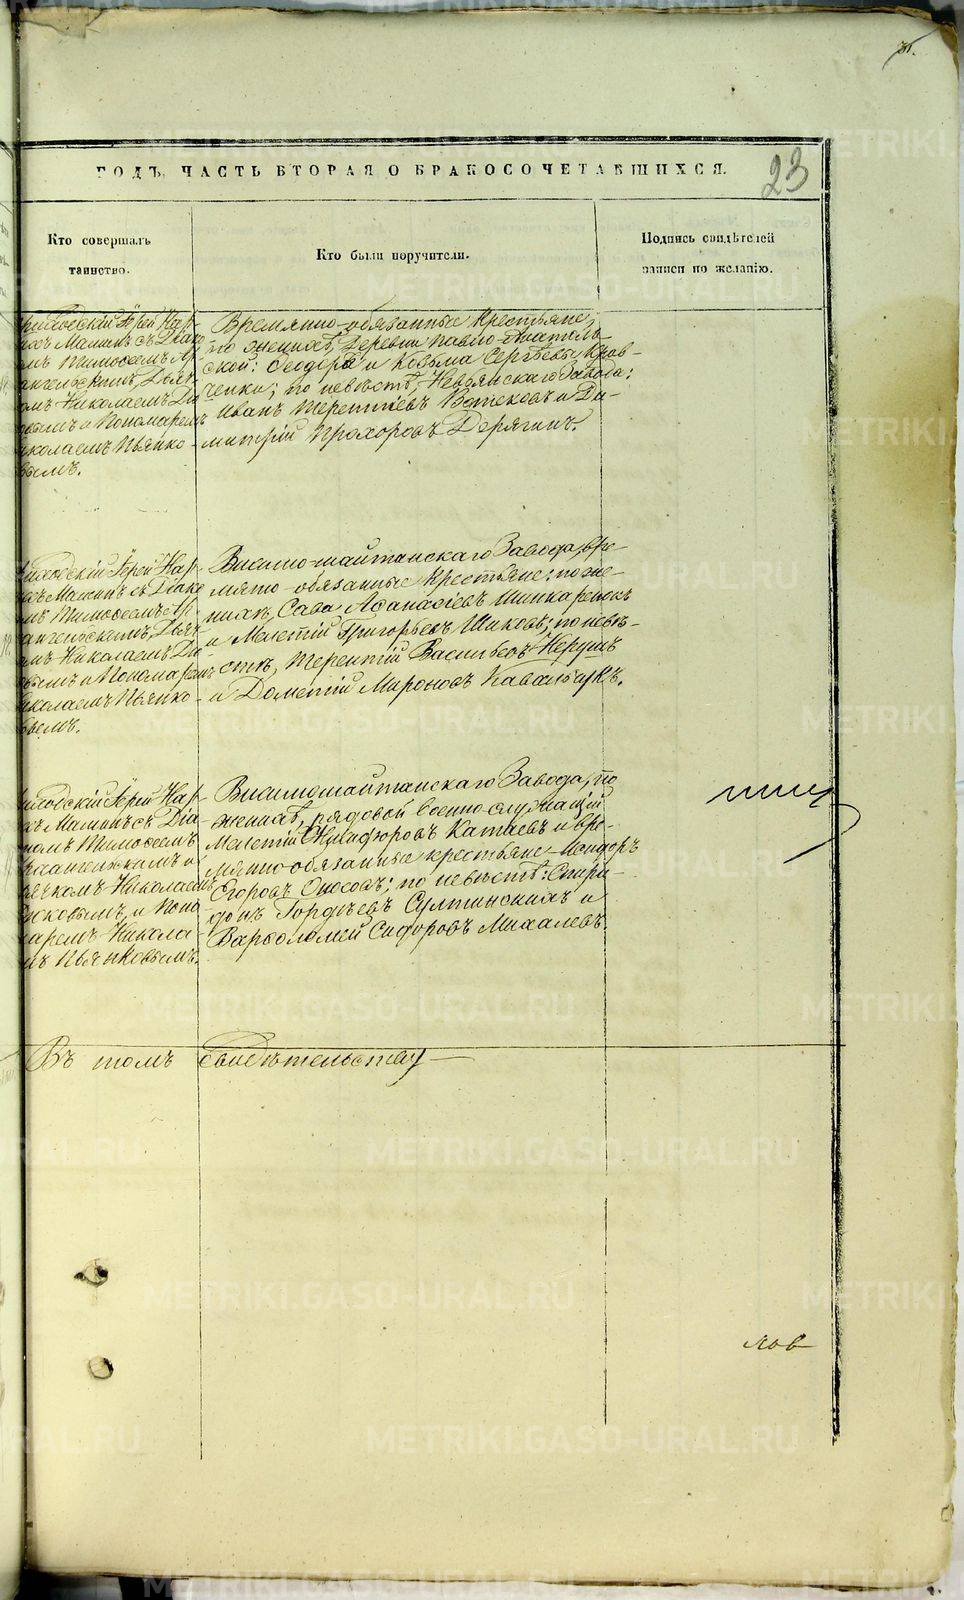 23
ГОДЪ, ЧАСТЬ ВТОРАЯ О БРАКОСОЧЕТАВШИХСЯ.
Кто совершалъ
таинство.
Кто были поручители.
Подпись свидѣтелей
записи по желанію.
Іерей Нар-
Маминъ съ Діако
Тимофеемъ Ар-
ангельскимъ, Дьяч
Николаемъ Дю
и Пономаремъ
иколаемъ Пьянко-
вымъ.
Времянно-обязанные крестьяне,
по женихѣ, деревни Павло-Анатоль-
ской: Ѳеодоръ и Козьма Сергѣевы Крав-
ченки; по невѣстѣ, Невьянскаго Завода:
Иванъ Терентіевъ и Ди-
митрій Прохоровъ Дерягинъ.
Іерей Нар-
Маминъ съ Діако
Тимофеемъ Ар-
ангельскимъ, Дьяч
Николаемъ Дю
и Пономаремъ
иколаемъ Пьянко-
вымъ.
Висимо-шайтанскаго Завода, вре-
мянно-обязанные крестьяне: по же-
нихѣ, Сава Аѳанасіевъ
и Мелетій Григорьевъ Шиковъ; по невѣ-
стѣ, Терентій Васильевъ Нерушъ
и Дометій Мироновъ Кавальчукъ.
Іерей Нар-
Маминъ съ Діа-
номъ Тимофеемъ
рхангельскимъ и
ячкомъ Николаемъ
юковымъ, и Поно
маремъ Никола
мъ Пьянковымъ.
Висимошайтанскаго Завода, по
женихѣ, рядовой военно-служащій
Мелетій Никифоровъ Катаевъ и вре-
мянно-обязанные крестьяне Исидоръ
Егоровъ Оносовъ; по невѣстѣ: Спири-
донъ Гордѣевъ Султинскихъ и
Варѳоломей Сидоровъ Михалевъ.
Въ томъ свидѣтельству
лов
METRIKI.GASO-URAL.RU